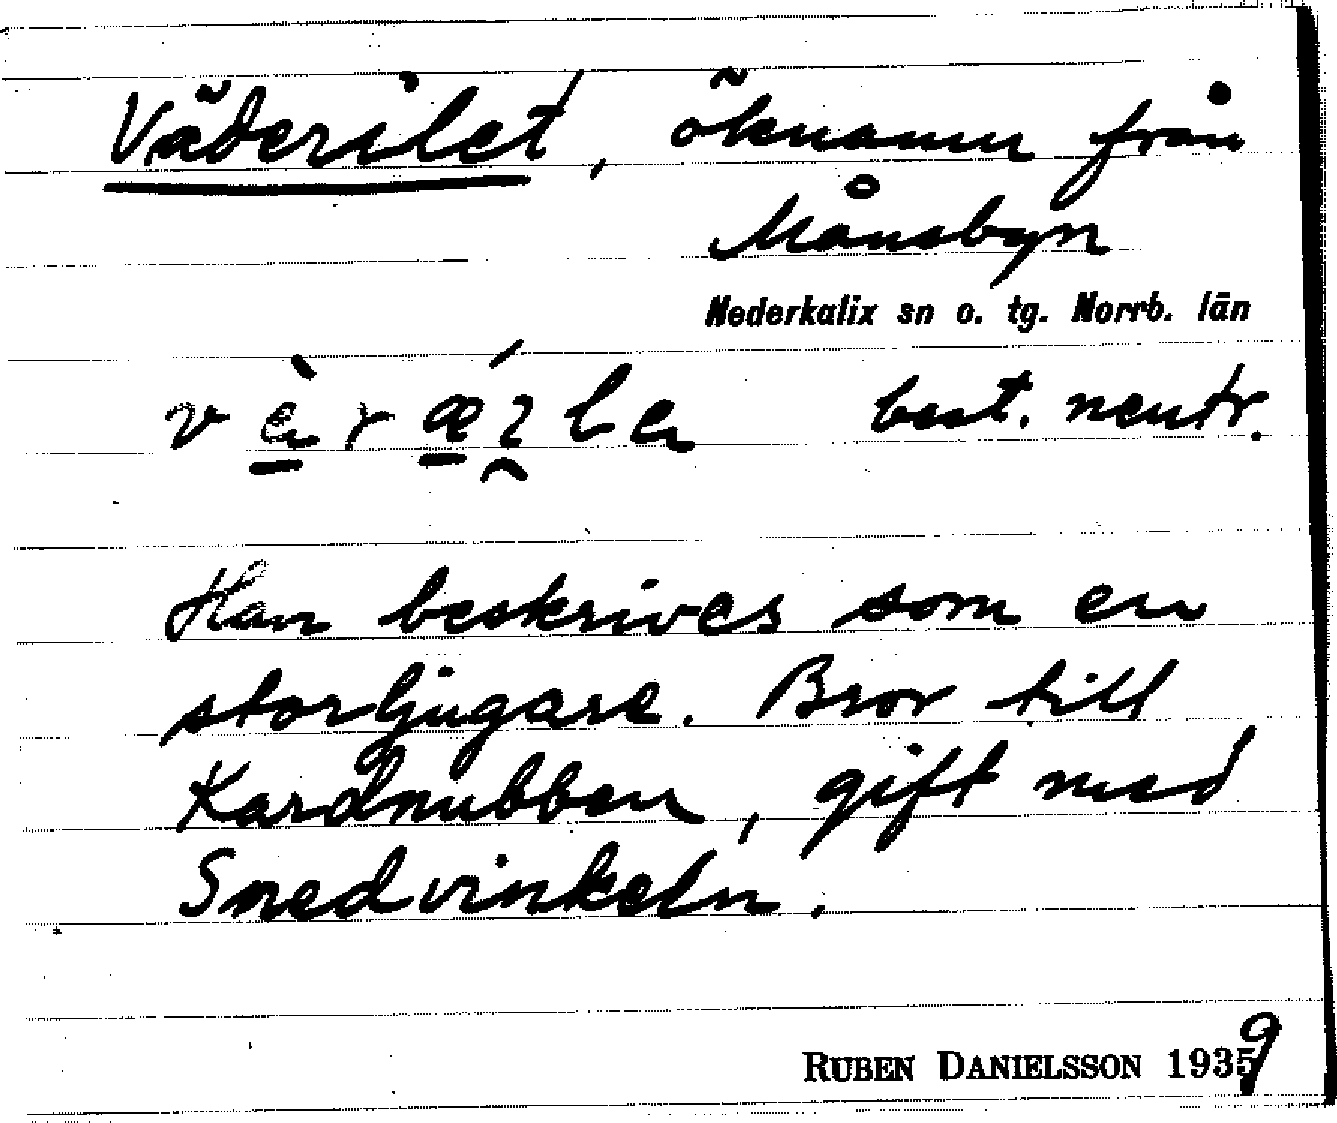 Väderilet, öknamn från
Månsbyn
Nederkalix sn o. tg. Norrb. län
best. neutr.
Han beskrives som en
storljugare. Bror till
Kardnubben, gift med
Snedvinkeln.
RUBEN DANIELSSON 1939